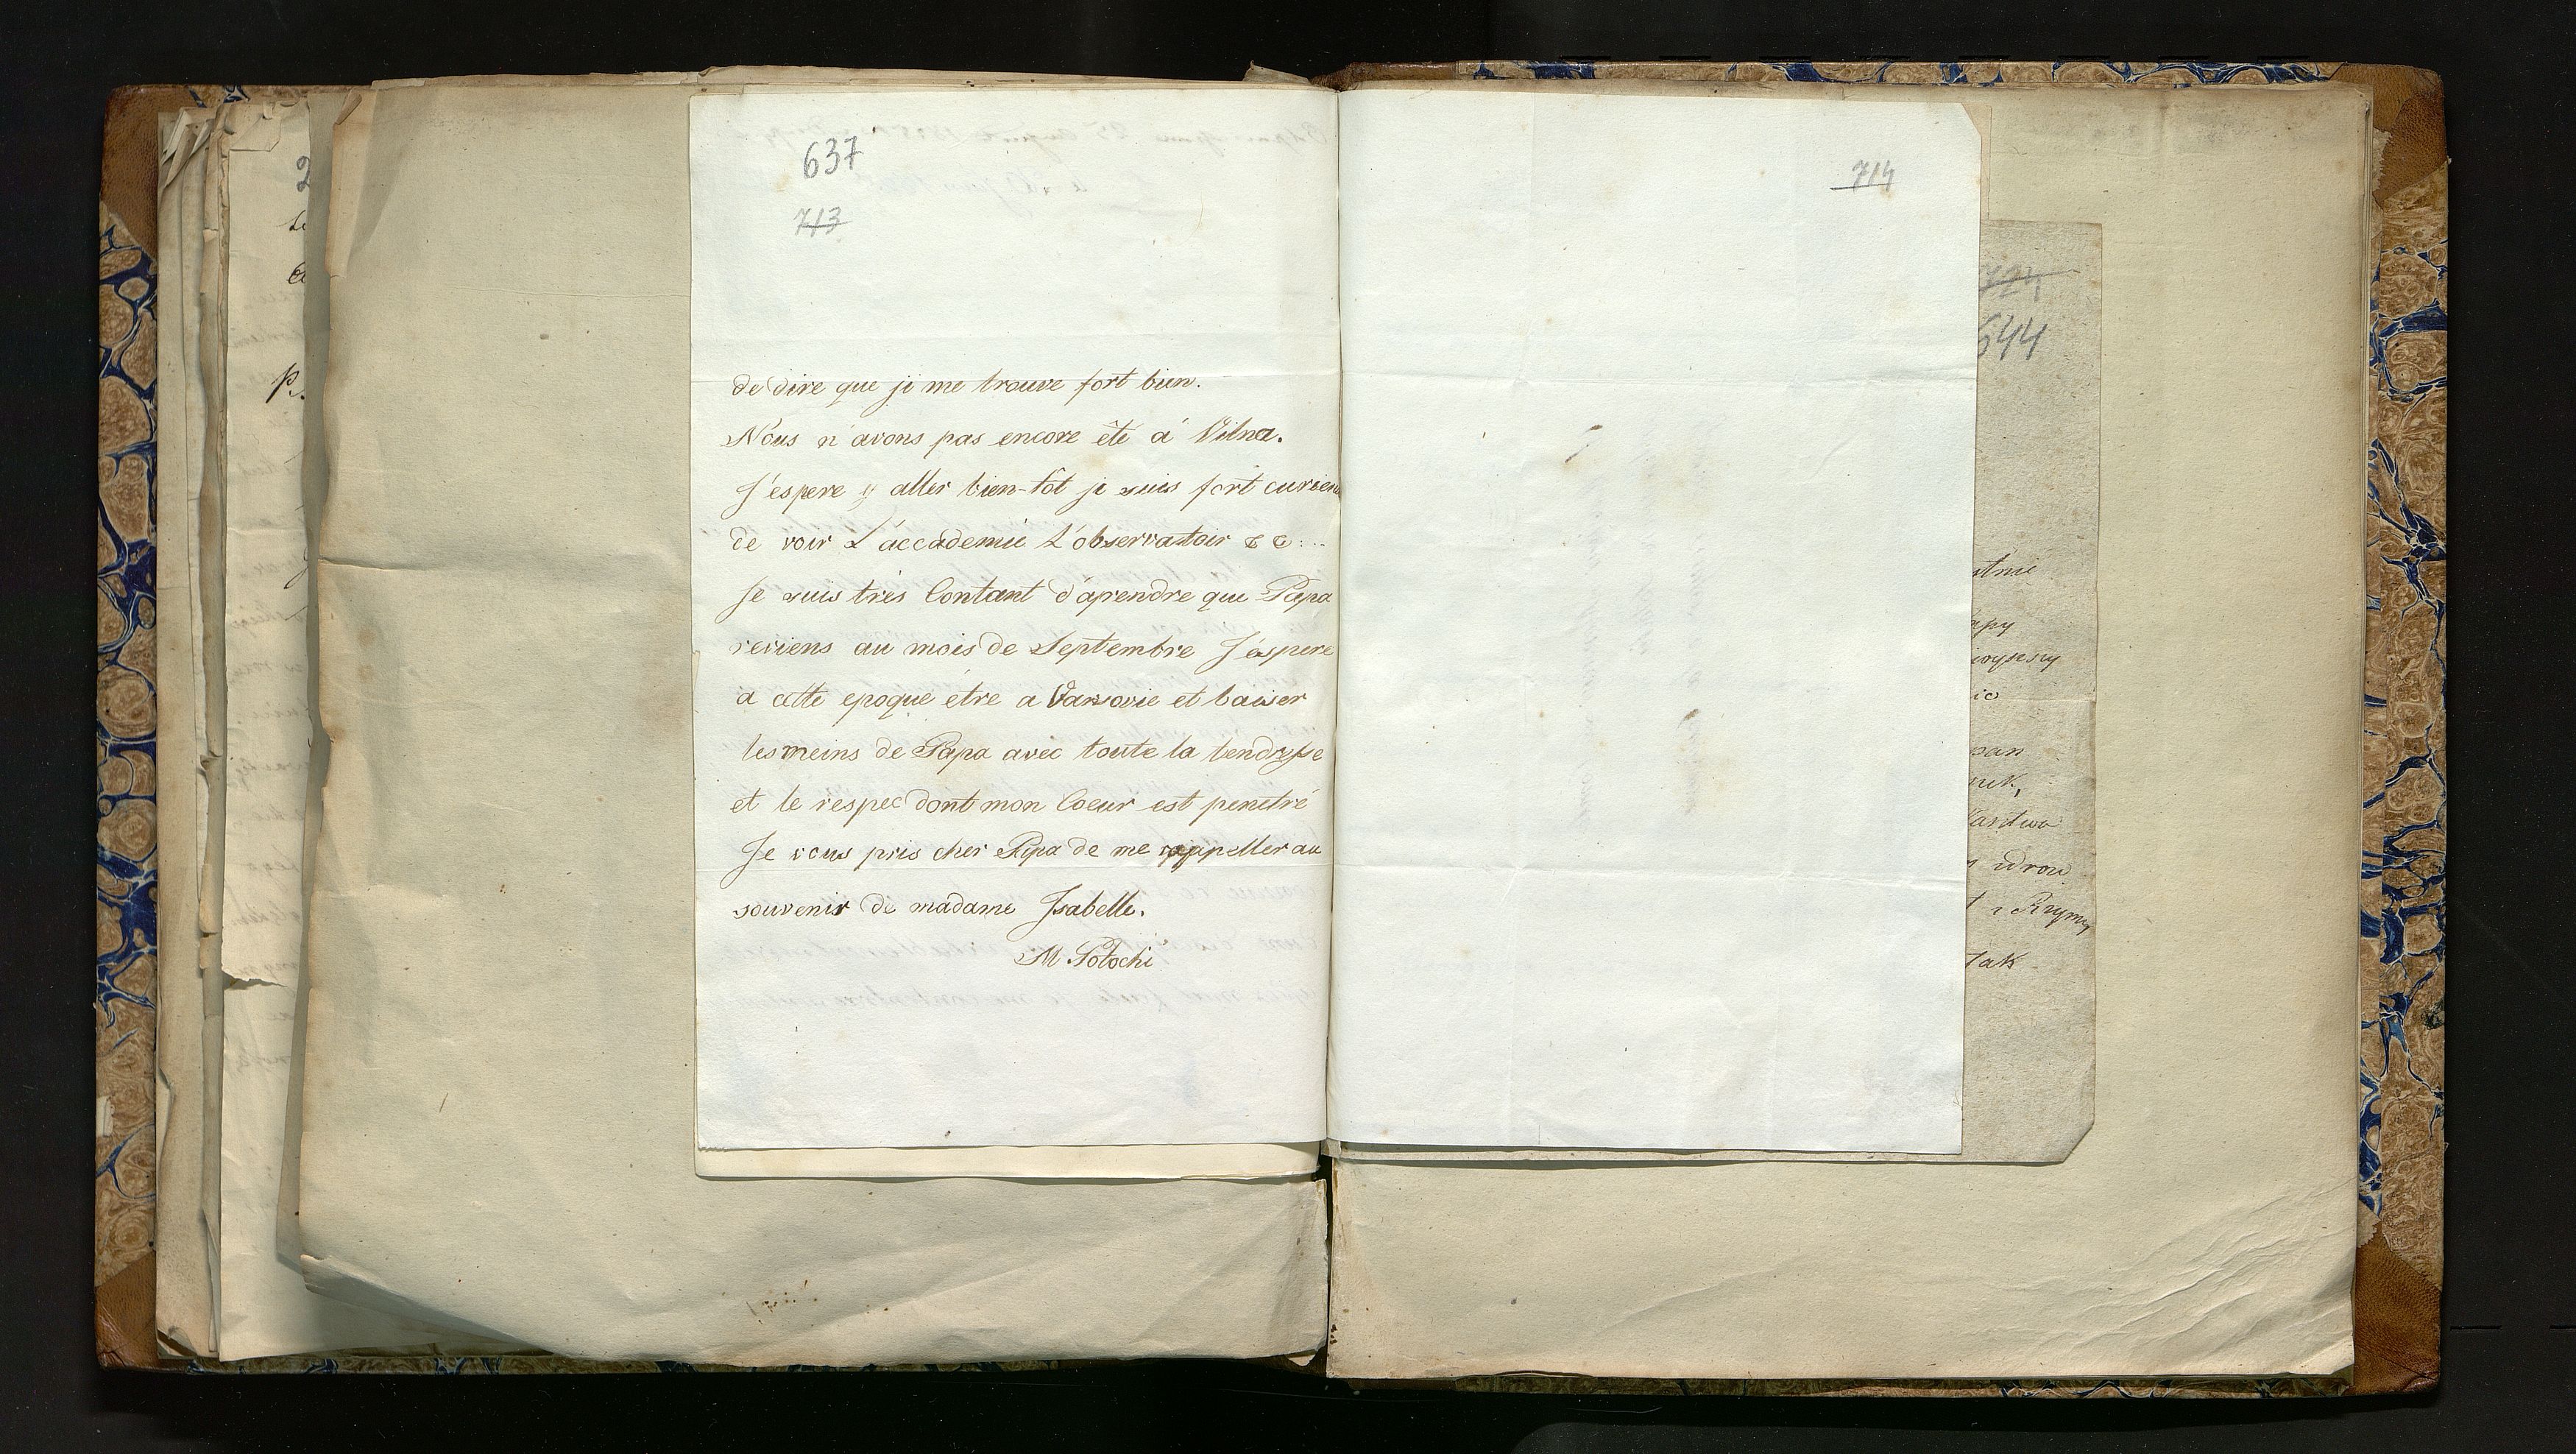 637
713
de dire que je me trouve fort bien.
Nous n'avons pas encore êté á Vilna.
J'espere y aller bien-tôt je suis fort curieu
de voir L'accademie L'observatoir &c &c...
Je suis très Contant d'áprendre que Papa
reviens au mois de Septembre J'éspere
a cette epoque etre a Varsovie et baiser
les meins de Papa avec toute la tendresse
et le respec dont mon Coeur est penetré
Je vous pris cher Papa de me rappeller au
souvenir de madame Isabelle.
M Potocki
714
724
644
stnie
apy
ic
pan
nek,
zdrow
Krymu
Tak
2
P.